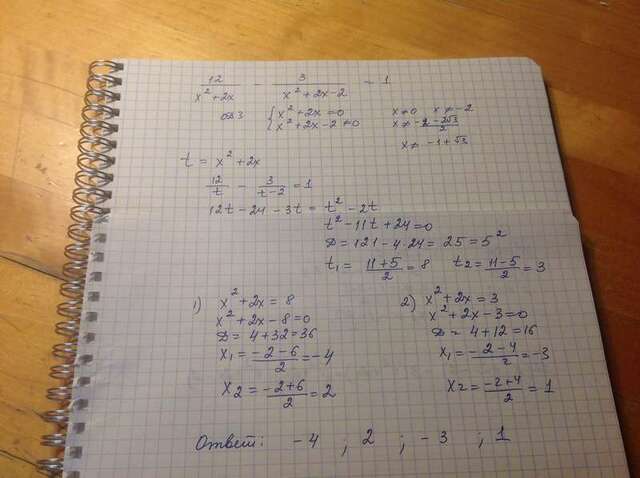 12/(x²+2x) - 3/(x²+2x-2) = 1
ОДЗ { x²+2x≠0 x≠0 x≠-2
x²+2x-2≠0 x≠ (-2-2√3)/2
x≠ -1+√3
t = x²+2x
12/t - 3/(t-2) = 1
12t-24-3t = t²-2t
t²-11t+24=0
D=121-4·24=25=5²
t₁= (11+5)/2 = 8 t₂= (11-5)/2 = 3
1) x²+2x=8
x²+2x-8=0
D=4+32=36
x₁= (-2-6)/2 = -4
x₂= (-2+6)/2 = 2
2) x²+2x=3
x²+2x-3=0
D=4+12=16
x₁= (-2-4)/2 = -3
x₂= (-2+4)/2 = 1
Ответ: -4 ; 2 ; -3 ; 1